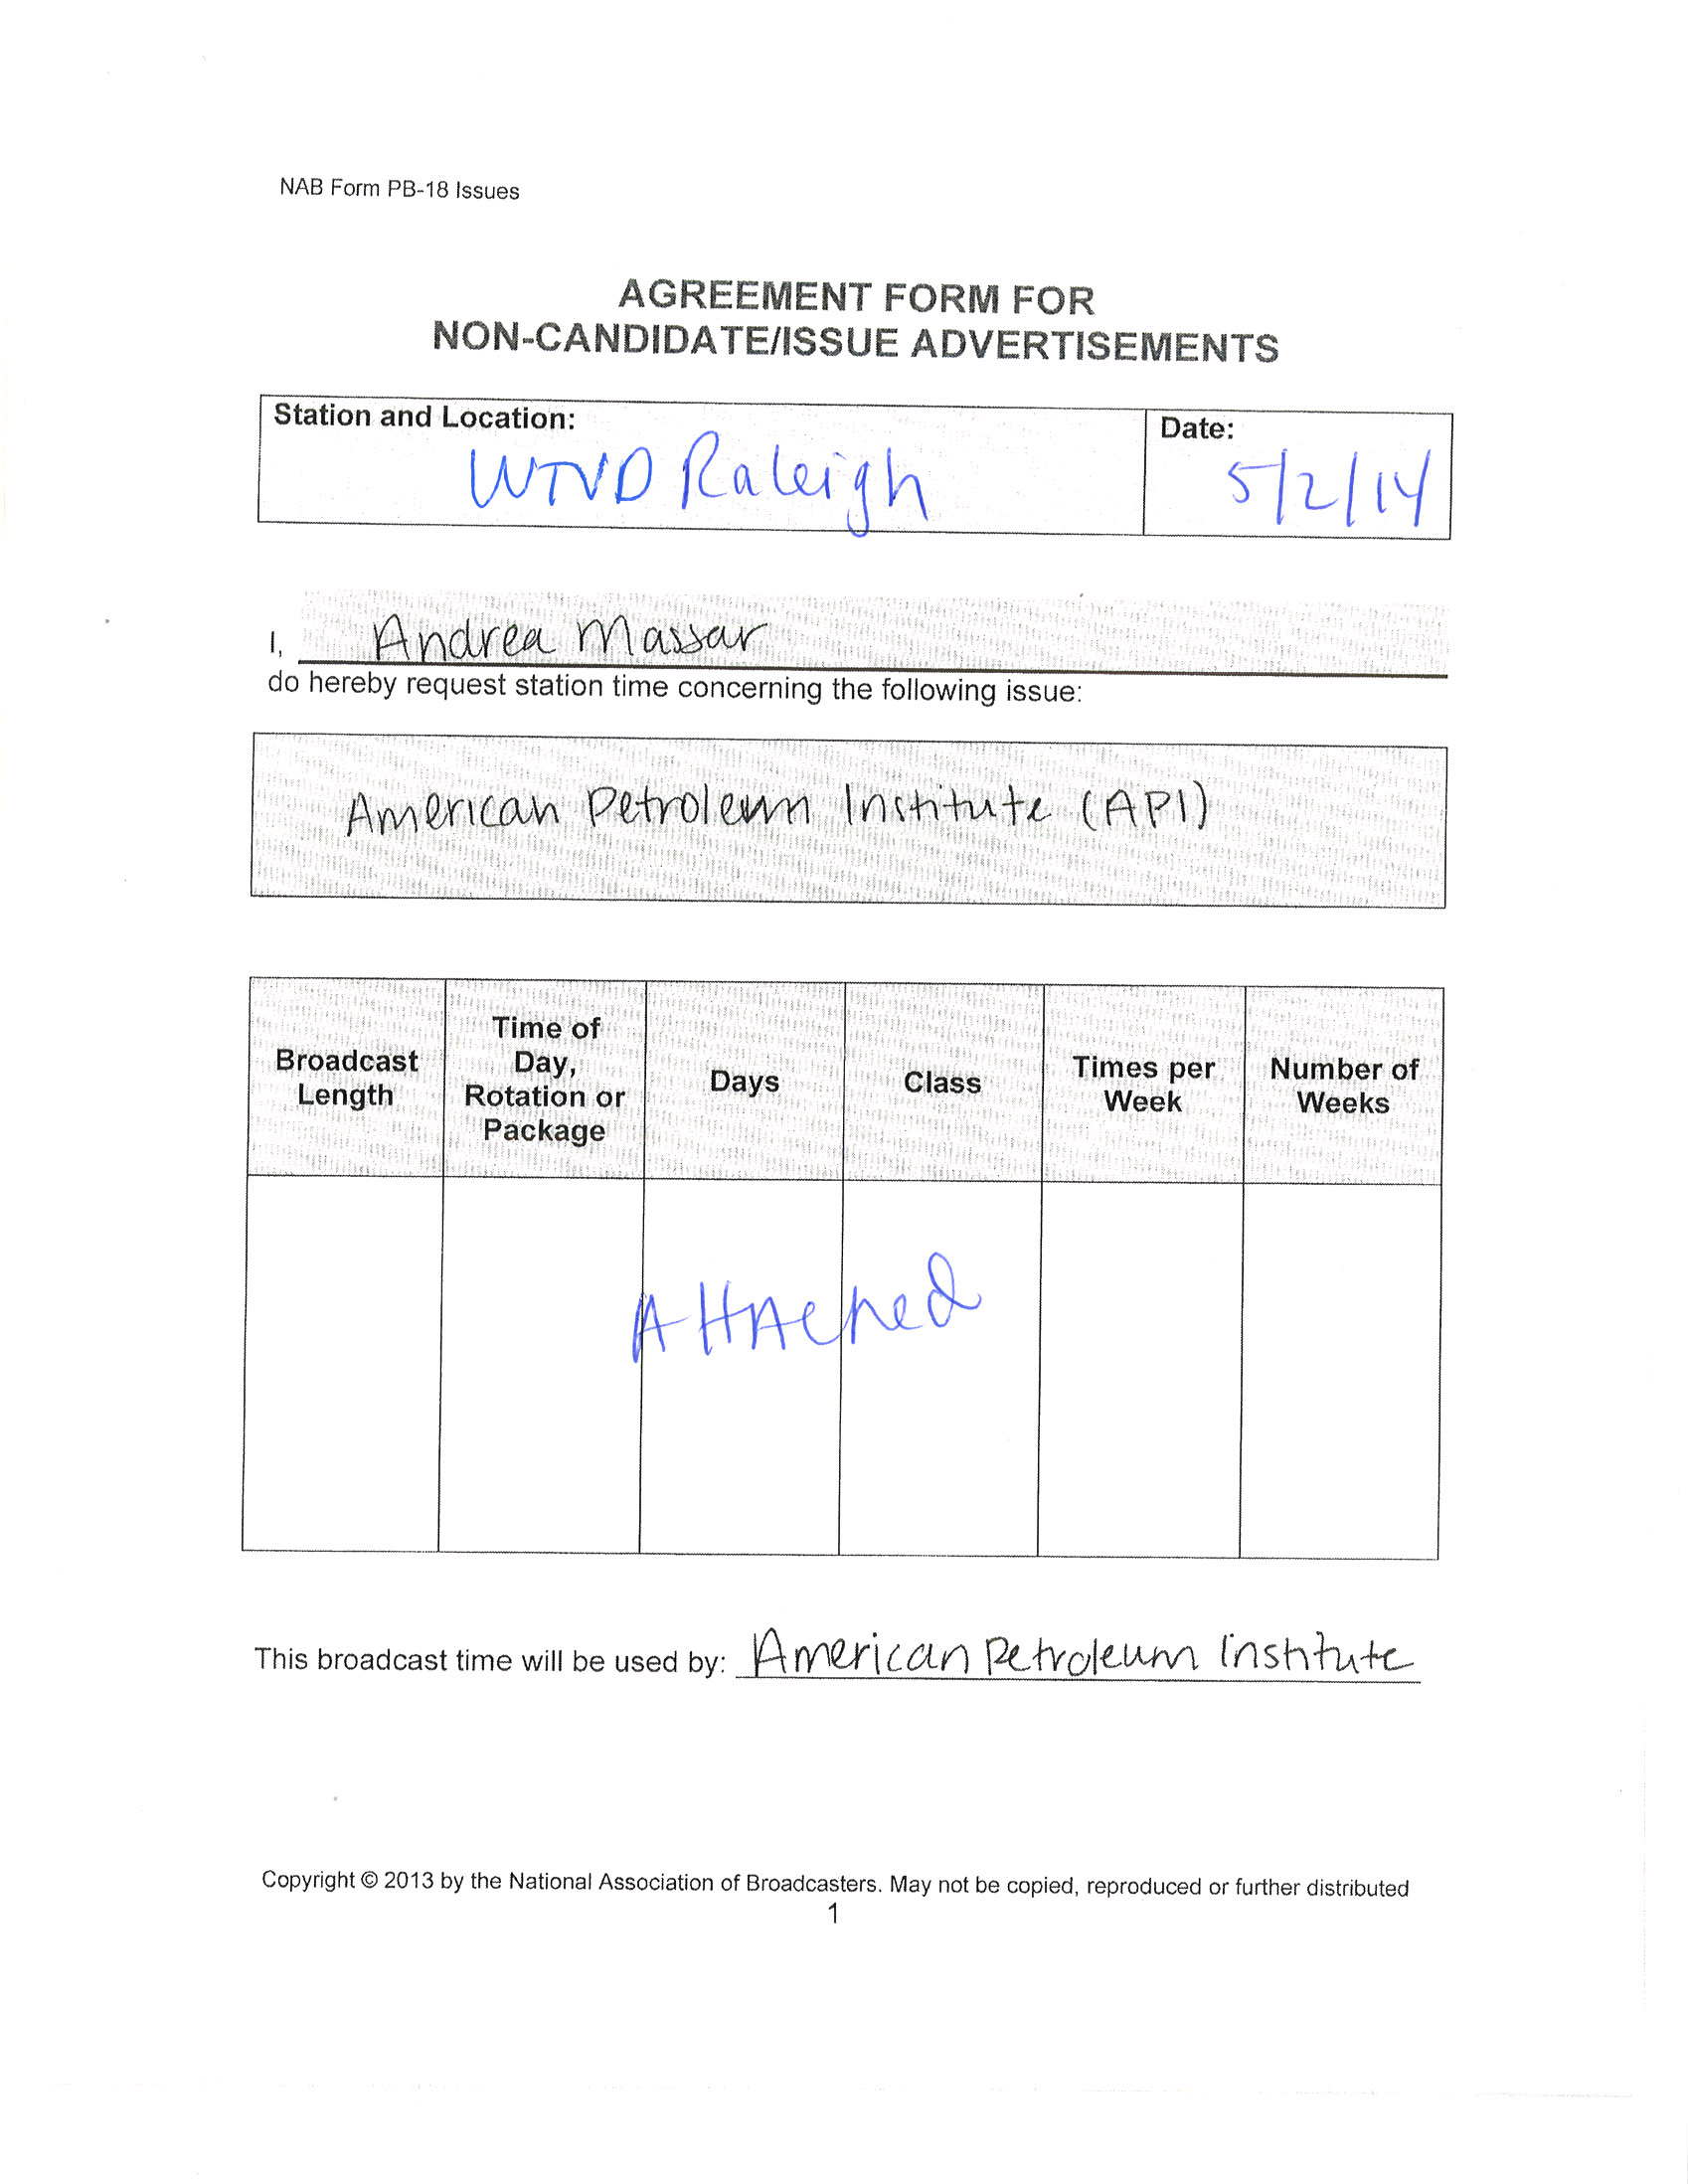 NAB Form PB-18 Issues
AGREEMENT FORM FOR
NON-CANDIDATE/ISSUE ADVERTISEMENTS
Station and Location:
WTVD Raleigh
Date:
5/2/14
I, Andrea Massar
do hereby request station time concerning the following issue:
American Petroleum Institute (API)
Broadcast Length
Time of Day, Rotation or Package
Days
Class
Times per Week
Number of Weeks
Attached
This broadcast time will be used by: American Petroleum Institute
Copyright © 2013 by the National Association of Broadcasters. May not be copied, reproduced or further distributed
1